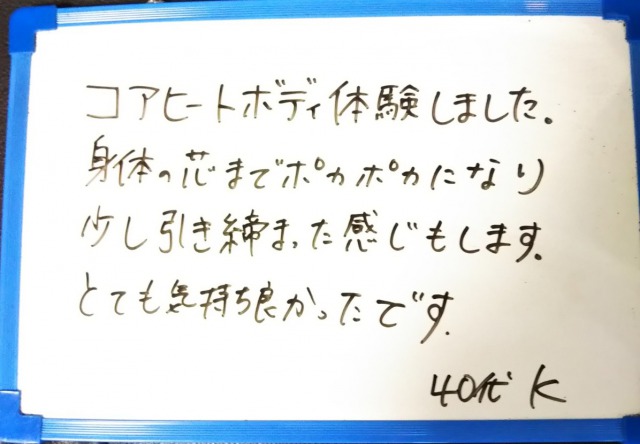 コアヒートボディ体験しました。
身体の芯までポカポカになり
少し引き締まった感じもします。
とても気持ち良かったです。
40代 K